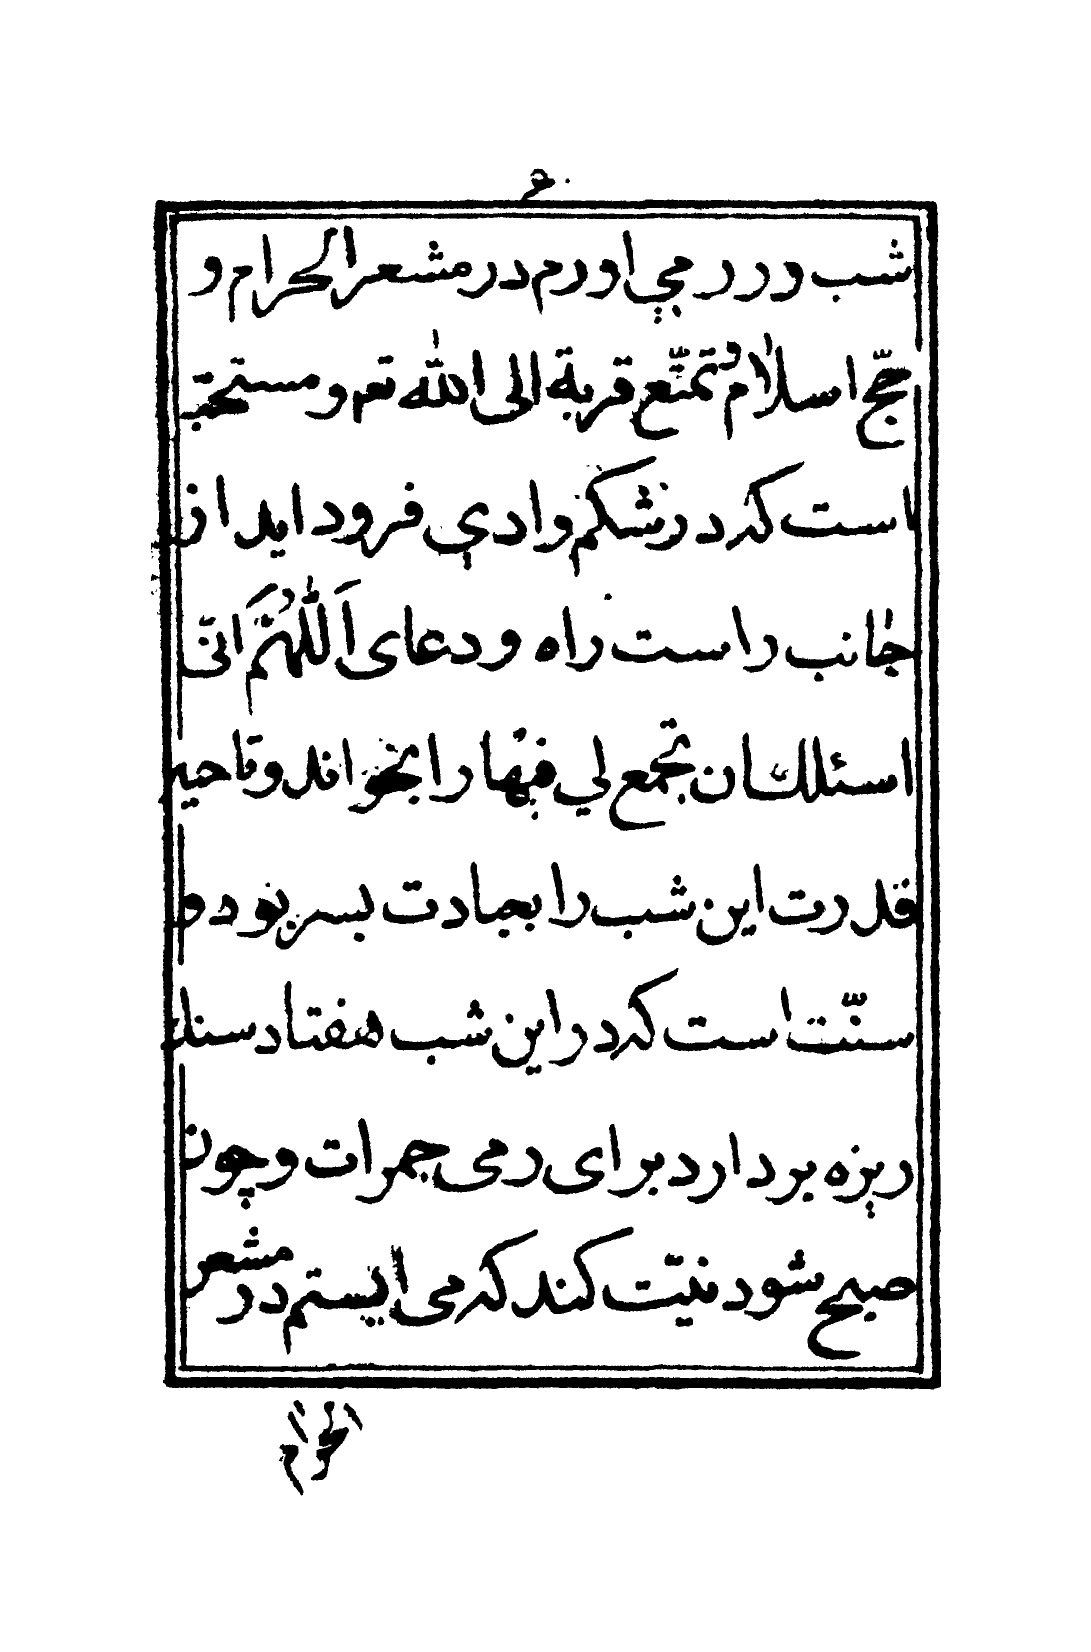 شب و ر ر مي اورم در مشعر الحرام و
حجّ اسلام تمتّع قربة الى الله تعم و مستحبّ
است كه در شكم وادي فرود ايد از
جانب راست راه و دعاى اَللّٰهُمَّ انّى
اسئلك ان تجمع لي فيها را بخواند و تا حين
قدرت اين شب را بعبادت بسر بود و
سنّت است كه در اين شب هفتاد سنك
ريزه بر دارد براى رمي جمرات و چون
صبح شود نيّت كند كه مى ايستم در مشعر
الحرام